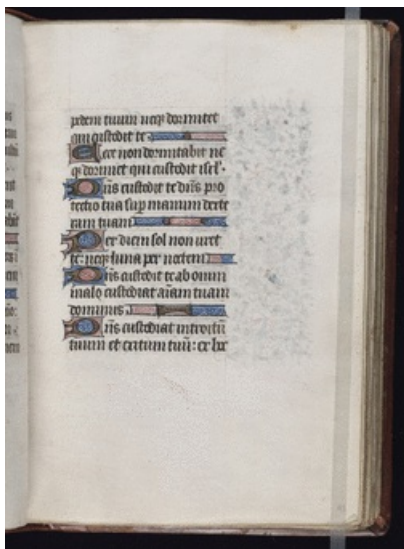 pedem tuum neqʒ dormitet
qui custodit te
Ecce non dormitabit ne
qʒ dormiet qui custodit isrl.
Dn̄s custodit te dn̄s pro
tectio tua sup manum dexte
ram tuam
Per diem sol non uret
te: neqʒ luna per noctem
Dn̄s custodit te ab omni
malo custodiat aīam tuam
dominus
Dn̄s custodiat introitū
tuum et exitum tuū: ex hoc